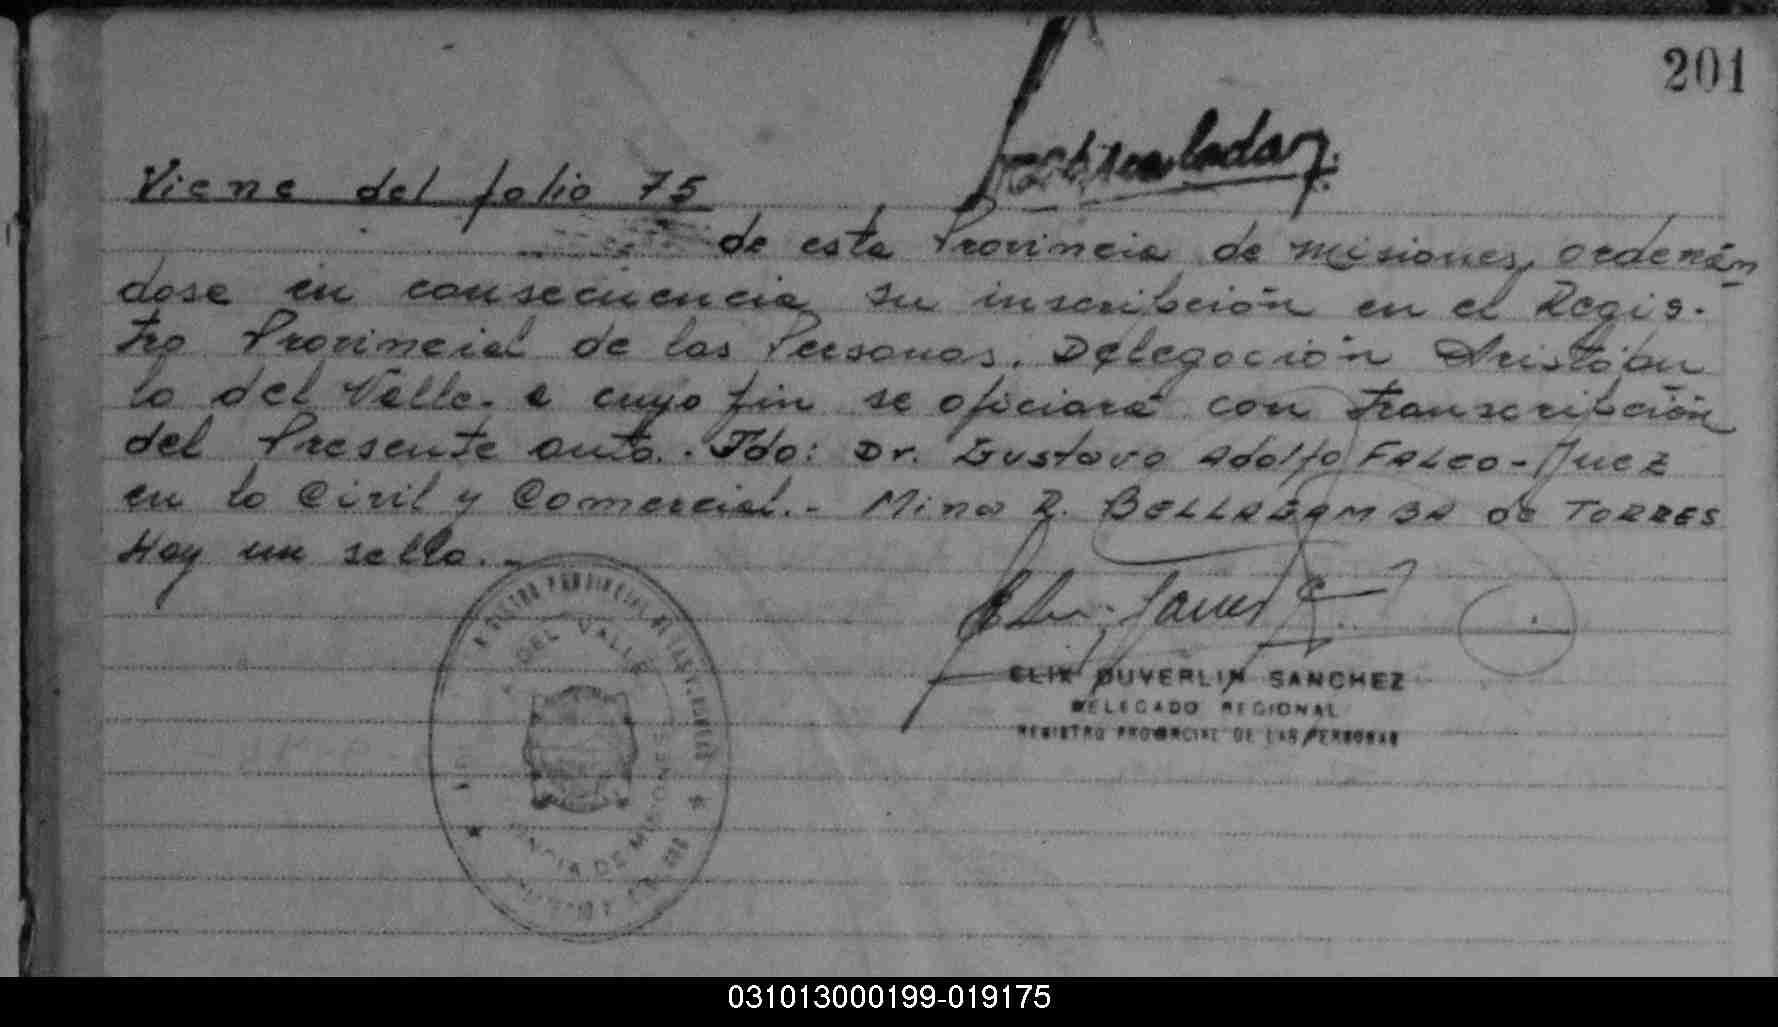 201
Viene del folio 75
de esta Provincia de Misiones, ordenán
dose en consecuencia su inscripción en el Regis-
tro Provincial de las Personas. Delegación Aristóbu
lo del Valle. a cuyo fin se oficiará con transcripción
del Presente auto.- Fdo: Dr. Gustavo Adolfo FALCO - Juez
en lo Civil y Comercial.- Mina R. BELLAGAMBA de TORRES
Hay un sello.-
ELIX DUVERLIN SANCHEZ
DELEGADO REGIONAL
REGISTRO PROVINCIAL DE LAS PERSONAS
REGISTRO PROVINCIAL DE LAS PERSONAS
DEL VALLE
DE MISIONES
031013000199-019175